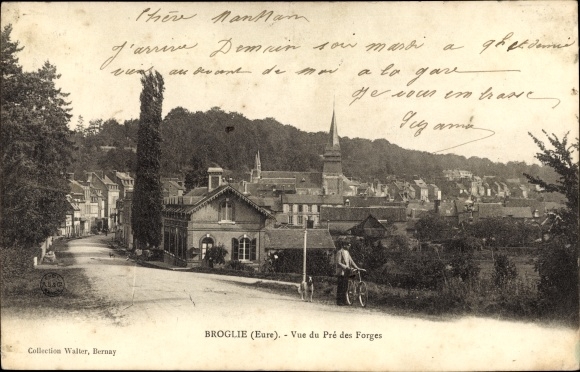 Chère Maman
J'arrive Demain soir mardi a 9h et demie
au devant de moi a la gare
Je vous embrasse
Suzanne
BROGLIE (Eure). - Vue du Pré des Forges
Collection Walter, Bernay